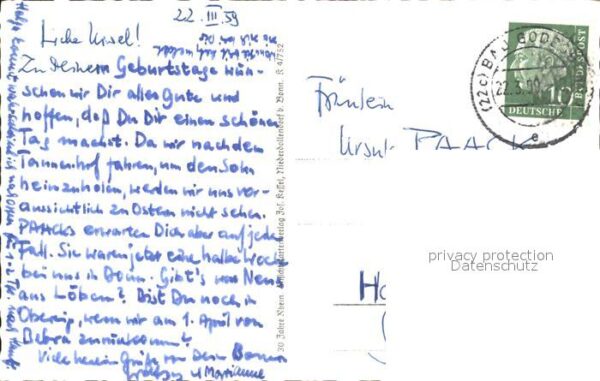 22. III. 59
Liebe Ursel!
Zu Deinem Geburtstage wün-
schen wir Dir alles Gute und
hoffen, daß Du Dir einen schönen
Tag machst. Da wir nach dem
Tannenhof fahren, um den Sohn
heimzuholen, werden wir uns vor-
aussichtlich zu Ostern nicht sehen.
PAACKs erwarten Dich aber auf jeden
Fall. Sie waren jetzt eine halbe Woche
bei uns in Bonn. Gibt's was Neues
aus Löben? Bist Du noch in
wenn wir am 1. April von
Bebra zurückkommen?
Viele herzliche Grüße von Deinen Bonnern
u Marianne
30 Jahre Rhein. Ansichtskartenverlag Jos. Keffel, Niederdollendorf b. Bonn. K 4/752
Fräulein
Ursula PAACK
(22c) BAD GODESB
22.3.
e
10
DEUTSCHE
BUNDESPOST
privacy protection
Datenschutz
Ha